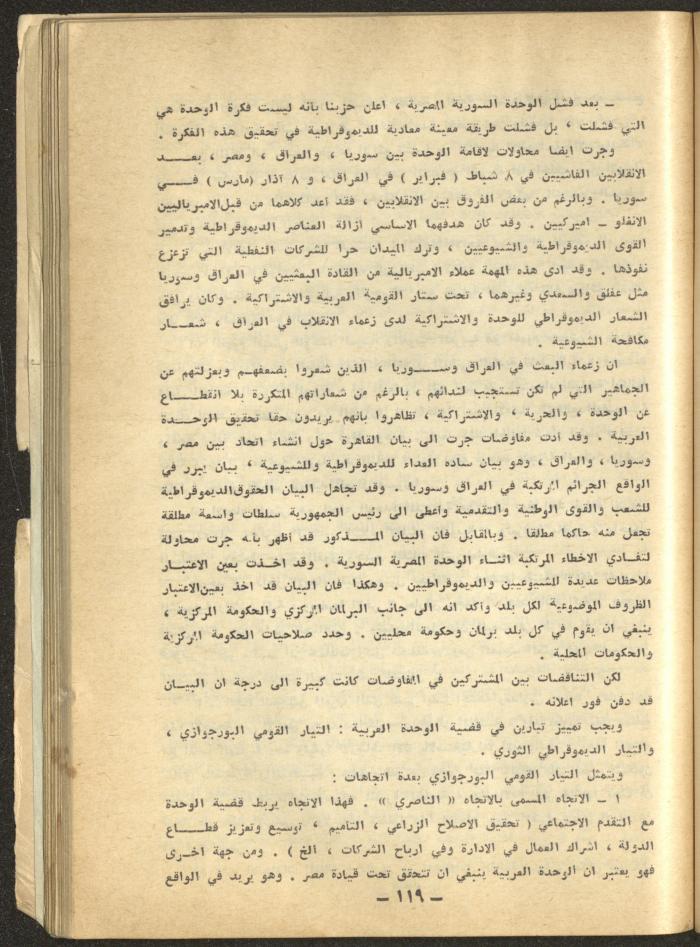 ـ بعد فشل الوحدة السورية المصرية ، اعلن حزبنا بانه ليست فكرة الوحدة هي
التي فشلت ، بل فشلت طريقة معينة معادية للديموقراطية في تحقيق هذه الفكرة .
وجرت ايضا محاولات لاقامة الوحدة بين سوريا ، والعراق ، ومصر ، بعـــد
الانقلابين الفاشيين في ٨ شباط ( فبراير ) في العراق ، و ٨ آذار (مارس ) فـــي
سوريا . وبالرغم من بعض الفروق بين الانقلابين ، فقد اعد كلاهما من قبل الامبرياليين
الانغلو ـ اميركيين . وقد كان هدفهما الاساسي ازالة العناصر الديموقراطية وتدمير
القوى الديموقراطية والشيوعيين ، وترك الميدان حرا للشركات النفطية التي تزعزع
نفوذها . وقد ادى هذه المهمة عملاء الامبريالية من القادة البعثيين في العراق وسوريا
مثل عفلق والسعدي وغيرهما ، تحت ستار القومية العربية والاشتراكية . وكان يرافق
الشعار الديموقراطي للوحدة والاشتراكية لدى زعماء الانقلاب في العراق ، شعـــار
مكافحة الشيوعية .
ان زعماء البعث في العراق وســـوريا ، الذين شعروا بضعفهـم وبعزلتهم عن
الجماهير التي لم تكن تستجيب لندائهم ، بالرغم من شعاراتهم المتكررة بلا انقطـــاع
عن الوحدة ، والحرية ، والاشتراكية ، تظاهروا بانهم يريدون حقا تحقيق الوحـــدة
العربية . وقد ادت مفاوضات جرت الى بيان القاهرة حول انشاء اتحاد بين مصر ،
وسوريا ، والعراق ، وهو بيان ساده العداء للديموقراطية وللشيوعية ، بيان يبرر في
الواقع الجرائم المرتكبة في العراق وسوريا . وقد تجاهل البيان الحقوق الديموقراطية
للشعب والقوى الوطنية والتقدمية واعطى الى رئيس الجمهورية سلطات واسعة مطلقة
تجعل منه حاكما مطلقا . وبالمقابل فان البيان المـــذكور قد أظهر بأنه جرت محاولة
لتفـادي الاخطاء المرتكبة اثنـاء الوحدة المصرية السورية . وقد اخـذت بعين الاعتبـار
ملاحظات عديدة للشيوعيين والديموقراطيين . وهكذا فان البيان قد اخذ بعين الاعتبار
الظروف الموضوعية لكل بلد واكد انه الى جانب البرلمان المركزي والحكومة المركزية ،
ينبغي ان يقوم في كل بلد برلمان وحكومة محليين . وحدد صلاحيات الحكومة المركزية
والحكومات المحلية .
لكن التناقضات بين المشتركين في المفاوضات كانت كبيرة الى درجة ان البيـــان
قد دفن فور اعلانه .
ويجب تمييز تيارين في قضية الوحدة العربية : التيار القومي البورجوازي ،
والتيار الديموقراطي الثوري .
ويتمثل التيار القومي البورجوازي بعدة اتجاهات :
١ ـ الاتجاه المسمى بالاتجاه « الناصري » . فهذا الاتجاه يربط قضية الوحدة
مع التقدم الاجتماعي ( تحقيق الاصلاح الزراعي ، التاميم ، توسيع وتعزيز قطـــاع
الدولة ، اشراك العمال في الادارة وفي ارباح الشركات ، الخ ) . ومن جهة اخـرى
فهو يعتبر ان الوحدة العربية ينبغي ان تتحقق تحت قيادة مصر . وهو يريد في الواقع
ـ ١١٩ ـ